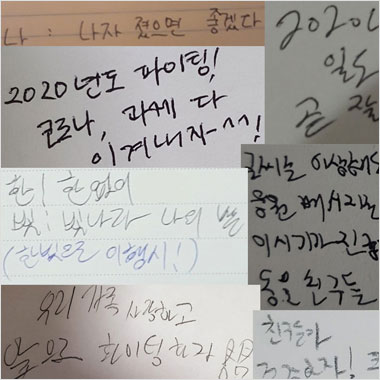 나 : 나자 졌으면 좋겠다
2020년도 파이팅!
코로나, 과제 다
이겨내자~^^!
2020
일도
곧 잘
한! 한없이
빛! 빛나라 나의 별
(한빛으로 이행시!)
글씨는 이상해도
응원 메시지는
이시기가 진
동은 친구들
우리 가족 사랑하고
앞으로 화이팅하자
친구들아